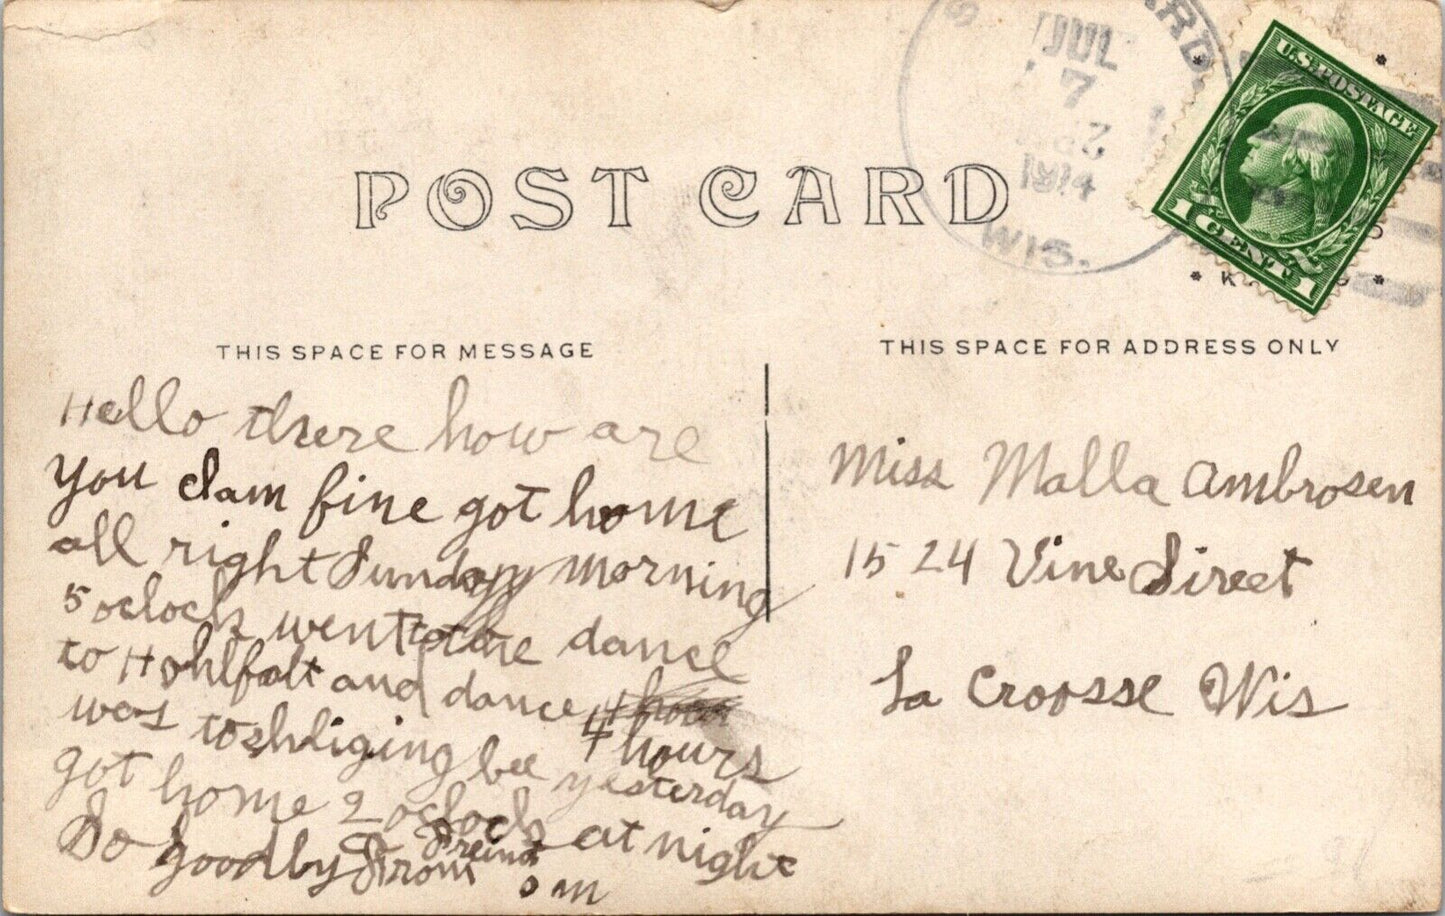 POST CARD
JUL
7
1914
WIS.
U.S. POSTAGE
1 CENT 1
THIS SPACE FOR MESSAGE
Hello there how are
you clam fine got home
all right Sunday morning
5 oclock went to the dance
to Hohlfalt and dance
4 hours
was to shliging bee yesterday
got home 2 oclock at night
So goodby From
a Freind
THIS SPACE FOR ADDRESS ONLY
Miss Malla Ambrosen
1524 Vine Sireet
La Croosse Wis